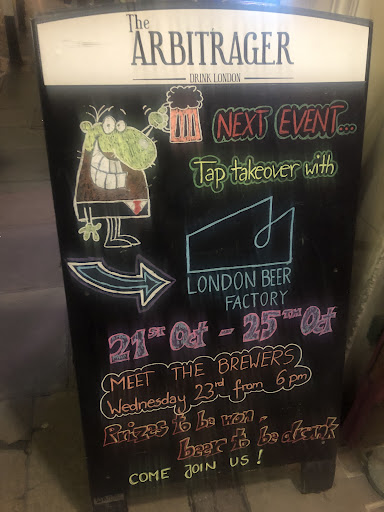 The
ARBITRAGER
DRINK LONDON
NEXT EVENT...
Tap takeover with
LONDON BEER
FACTORY
21ST Oct - 25TH Oct
MEET THE BREWERS
Wednesday 23rd from 6pm
Prizes to be won -
beer to be drunk
COME JOIN US!